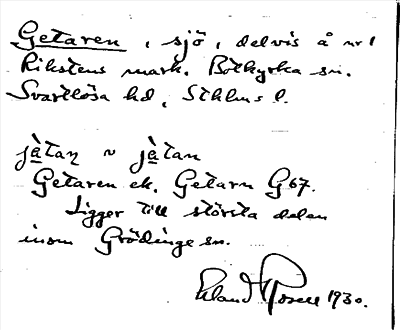 Getaren, sjö, delvis å nr 1
Rikstens mark. Botkyrka sn.
Svartlösa hd, Sthlms l.
jàtan ~ jàtan
Getaren ek. Getarn G 67.
Ligger till största delen
inom Grödinge sn.
Erland Rosell 1930.